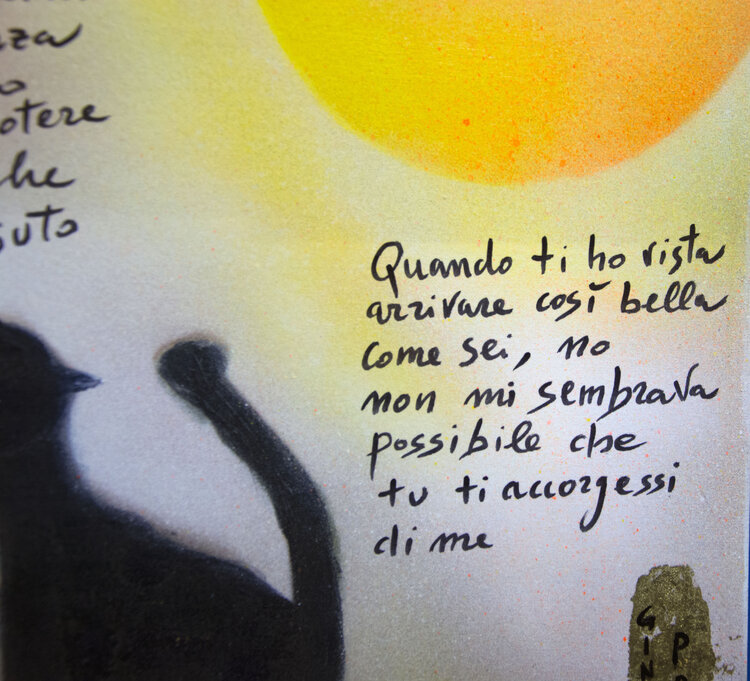 otere
he
suto
Quando ti ho vista
arrivare così bella
come sei, no
non mi sembrava
possibile che
tu ti accorgessi
di me
GIN
P